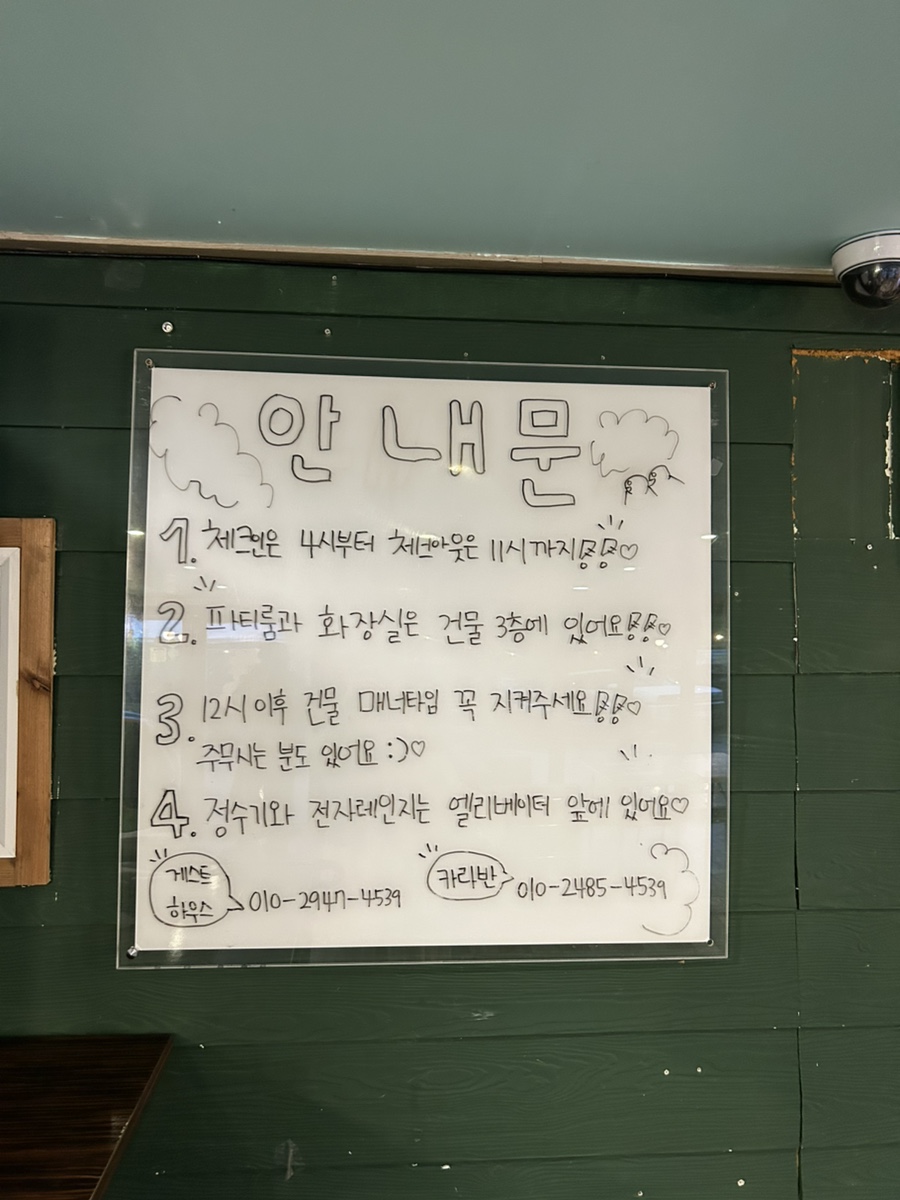 안내문
1. 체크인은 4시부터 체크아웃은 11시까지!!♡
2. 파티룸과 화장실은 건물 3층에 있어요!!♡
3. 12시 이후 건물 매너타임 꼭 지켜주세요!!♡
주무시는 분도 있어요 :)♡
4. 정수기와 전자레인지는 엘리베이터 앞에 있어요♡
게스트
하우스 010-2947-4539
카라반 010-2485-4539